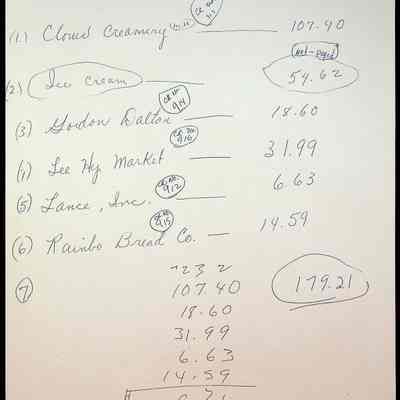 (1.) Cloud Creamery 107.40
Not-paid
(2) Ice Cream 54.62
CK. No. 914
(3) Gordon Dalton 18.60
CK. No. 916
(1) Lee Hy Market 31.99
CK. No. 912
(5) Lance, Inc. 6.63
CK. No. 915
(6) Rainbo Bread Co. 14.59
7232
(7) 107.40 179.21
18.60
31.99
6.63
14.59